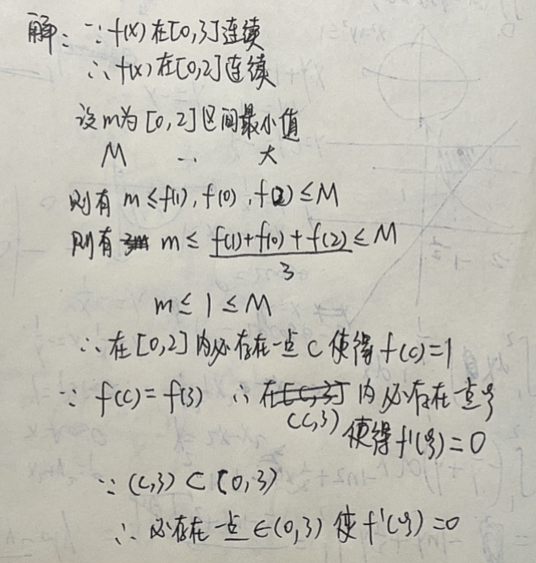 解：∵f(x)在[0,3]连续
∴f(x)在[0,2]连续
设m为[0,2]区间最小值
M ‥ 大
则有 m≤f(1),f(0),f(2)≤M
则有 m≤ (f(1)+f(0)+f(2))/3 ≤M
m≤1≤M
∴在[0,2]内必存在一点C使得f(c)=1
∵f(c)=f(3) ∴在(C,3)内必存在一点ξ
使得f'(ξ)=0
∵(c,3)⊂(0,3)
∴必存在一点∈(0,3)使f'(ξ)=0